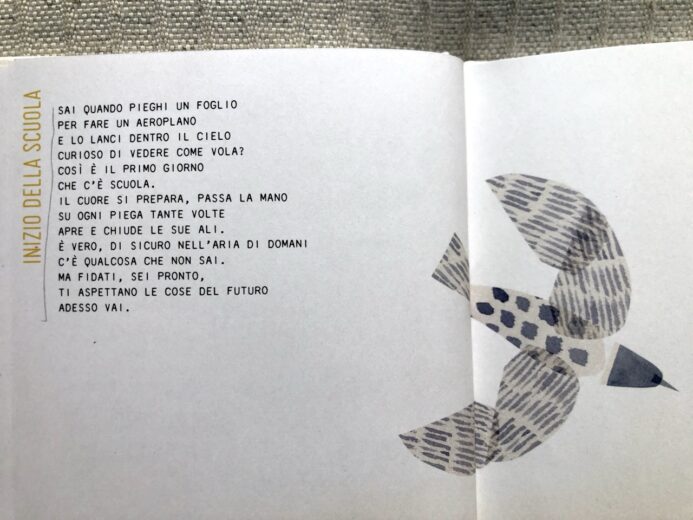 INIZIO DELLA SCUOLA
SAI QUANDO PIEGHI UN FOGLIO
PER FARE UN AEROPLANO
E LO LANCI DENTRO IL CIELO
CURIOSO DI VEDERE COME VOLA?
COSÌ È IL PRIMO GIORNO
CHE C'È SCUOLA.
IL CUORE SI PREPARA, PASSA LA MANO
SU OGNI PIEGA TANTE VOLTE
APRE E CHIUDE LE SUE ALI.
È VERO, DI SICURO NELL'ARIA DI DOMANI
C'È QUALCOSA CHE NON SAI.
MA FIDATI, SEI PRONTO,
TI ASPETTANO LE COSE DEL FUTURO
ADESSO VAI.